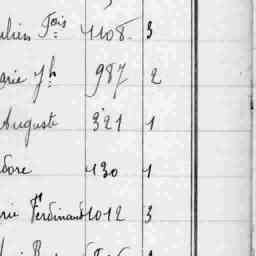 ulien Fois 4108 3
arie Jh 987 2
Auguste 321 1
dore 430 1
rie Ferdinand 1012 3